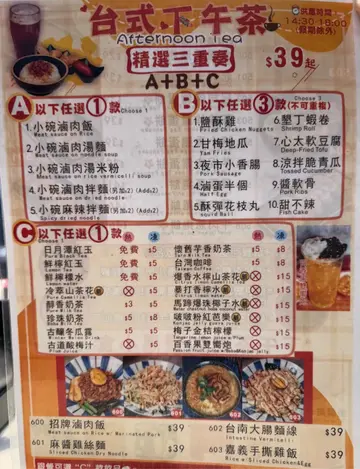 台式下午茶
Afternoon Tea
供應時間
14:30-18:00
(假期除外)
精選三重奏
$39起
A+B+C
A 以下任選①款 Choose 1
1. 小碗滷肉飯
Meat sauce on Rice
2. 小碗滷肉湯麵
Meat sauce on noodle soup
3. 小碗滷肉湯米粉
Meat sauce on rice vermicelli soup
4. 小碗滷肉拌麵 (另加$2) (Add$2)
Meat sauce on dried noodle
5. 小碗麻辣拌麵 (另加$2) (Add$2)
Spicy dried noodle
B 以下任選③款(不可重複)
1. 鹽酥雞
Fried Chicken Nuggets
2. 甘梅地瓜
Yam Fries
3. 夜市小香腸
Pork Sausage
4. 滷蛋半個
Half Egg
5. 酥彈花枝丸
Squid Ball
6. 墾丁蝦卷
Shrimp Roll
7. 心太軟豆腐
Deep-Fried Tofu
8. 涼拌脆青瓜
Tossed Cucumber
9. 醬軟骨
Pork Ribs
10. 甜不辣
Fish Cake
C 以下任選①款 Choose 1
熱 凍
日月潭紅玉 免費 $5
Pure Black Tea
鮮檸紅玉 免費 $5
Lemon Tea
鮮檸檬水 免費 $5
冷萃山茶花 $5
Pure Camellia Tea
醇香奶茶 $3 $5
Milk Tea
珍珠奶茶 $5 $5
古釀冬瓜露 $5 $5
古道酸梅汁 $5
Plum Juice
熱 凍
懷舊芋香奶茶 $5 $8
Taro Milk Tea
台灣咖啡 $5 $8
Taiwan Coffee
爆香水檸山茶花 $15
暴打檸檬水 $15
馬蹄爆珠椰子水 $15
啵啵粉紅芭樂 $15
梅子金桔檸檬 $15
百香果雙響炮 $15
600 601 602 603
600 招牌滷肉飯 $39
Rice w/ Marinated Pork
601 麻醬雞絲麵 $39
Sliced Chicken Dry Noodle
602 台南大腸麵線 $39
Intestine Vermicelli
603 嘉義手撕雞飯 $39
Rice w/ Sliced Chicken&Egg